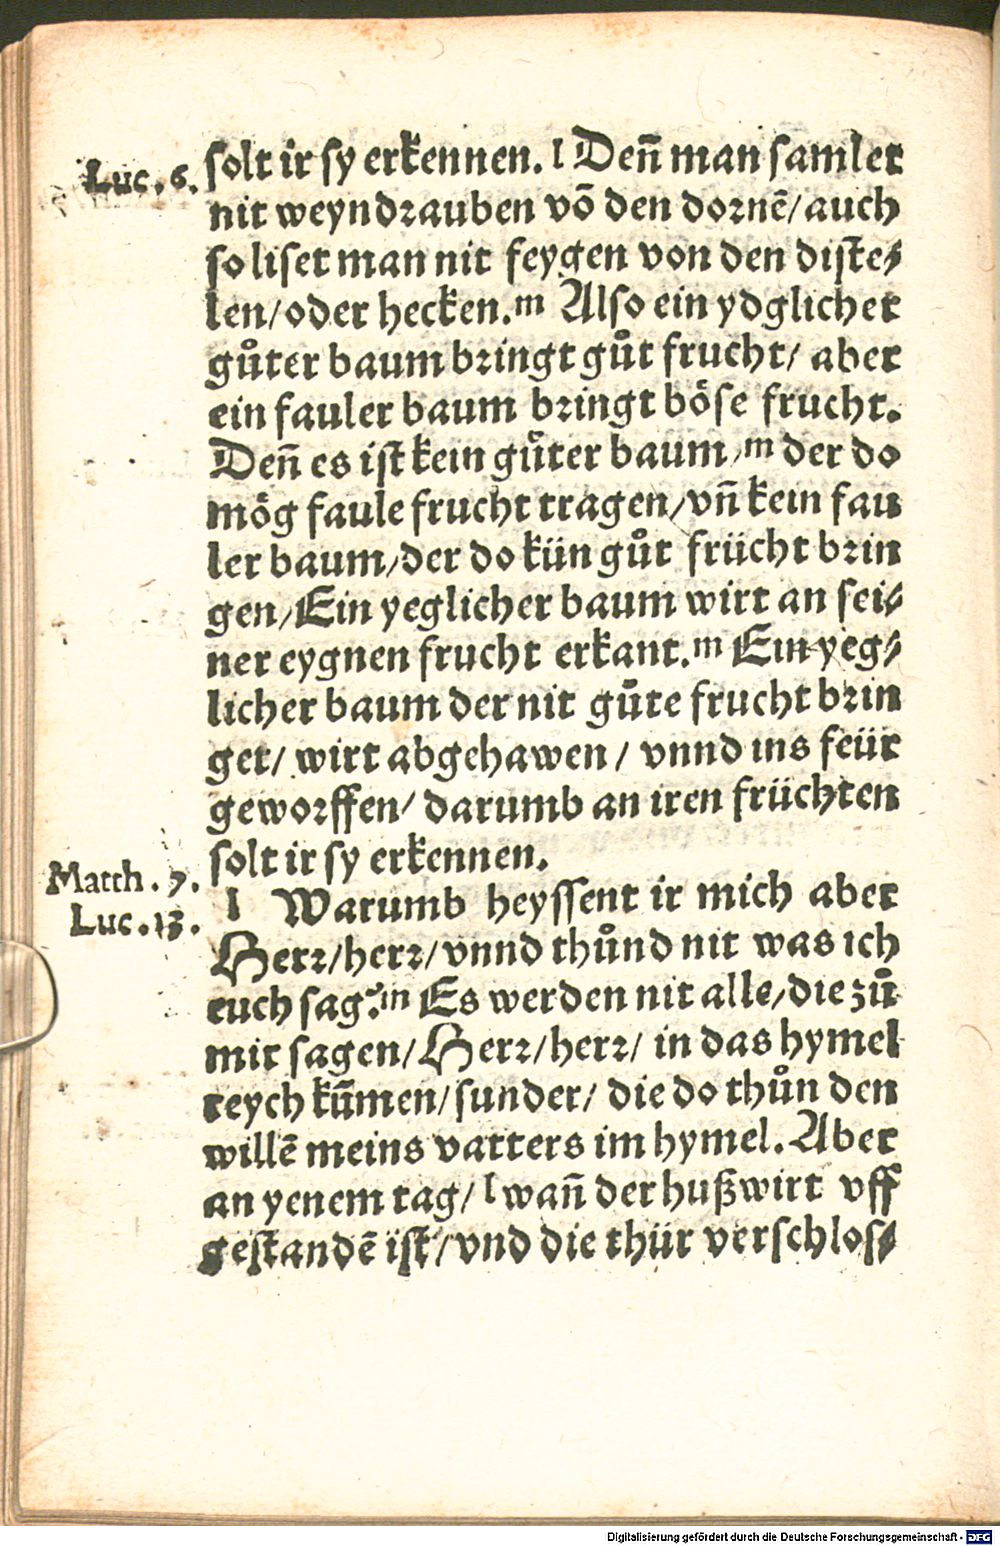 Luc. 6.
solt ir sy erkennen. l Deñ man samlet
nit weyndrauben võ den dornẽ/ auch
so liset man nit feygen von den diste⸗
len/ oder hecken. m Also ein ydglicher
gůter baum bringt gůt frucht/ aber
ein fauler baum bringt böse frucht.
Deñ es ist kein gůter baum/ m der do
mög faule frucht tragen/ vñ kein fau
ler baum/ der do kün gůt frücht brin
gen/ Ein yeglicher baum wirt an sei⸗
ner eygnen frucht erkant. m Ein yeg⸗
licher baum der nit gůte frucht brin
get/ wirt abgehawen/ vnnd ins feür
geworffen/ darumb an iren früchten
solt ir sy erkennen.
Matth. 7.
Luc. 13.
l Warumb heyssent ir mich aber
Herr/ herr/ vnnd thůnd nit was ich
euch sag? m Es werden nit alle/ die zů
mir sagen/ Herr/ herr/ in das hymel
reych kũmen/ sunder/ die do thůn den
willẽ meins vatters im hymel. Aber
an yenem tag/ l wañ der hußwirt vff
gestandẽ ist/ vnd die thür verschlos⸗
Digitalisierung gefördert durch die Deutsche Forschungsgemeinschaft - DFG